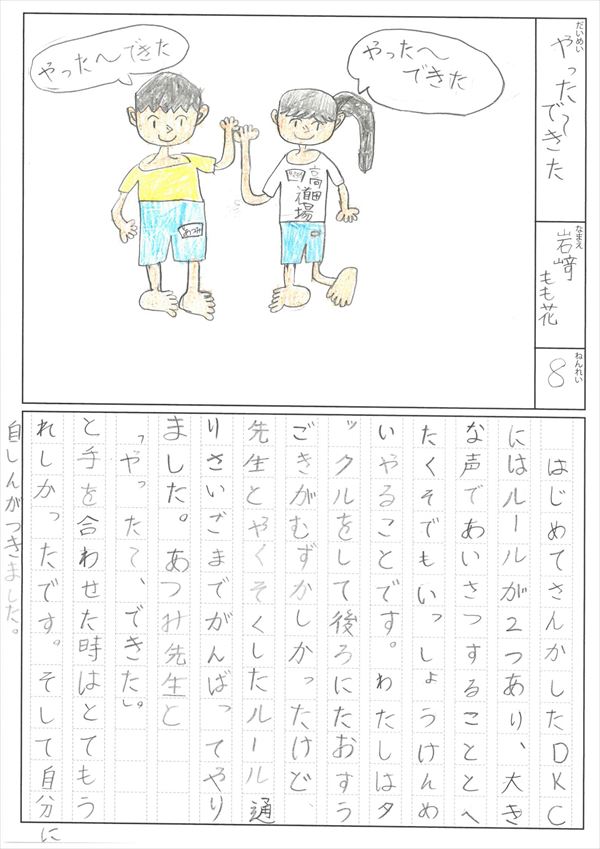 だいめい
やったーできた
なまえ
岩﨑もも花
ねんれい
8
やったー
できた
やったーできた
高田
道場
あつみ
はじめてさんかしたDKC
にはルールが2つあり、大き
な声であいさつすることとへ
たくそでもいっしょうけんめ
いやることです。わたしはタ
ックルをして後ろにたおすう
ごきがむずかしかったけど、
先生とやくそくしたルール通
りさいごまでがんばってやり
ました。あつみ先生と
「やったー、できた」。
と手を合わせた時はとてもう
れしかったです。そして自分に
自しんがつきました。